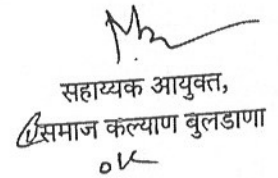 सहाय्यक आयुक्त,
समाज कल्याण बुलडाणा
ok